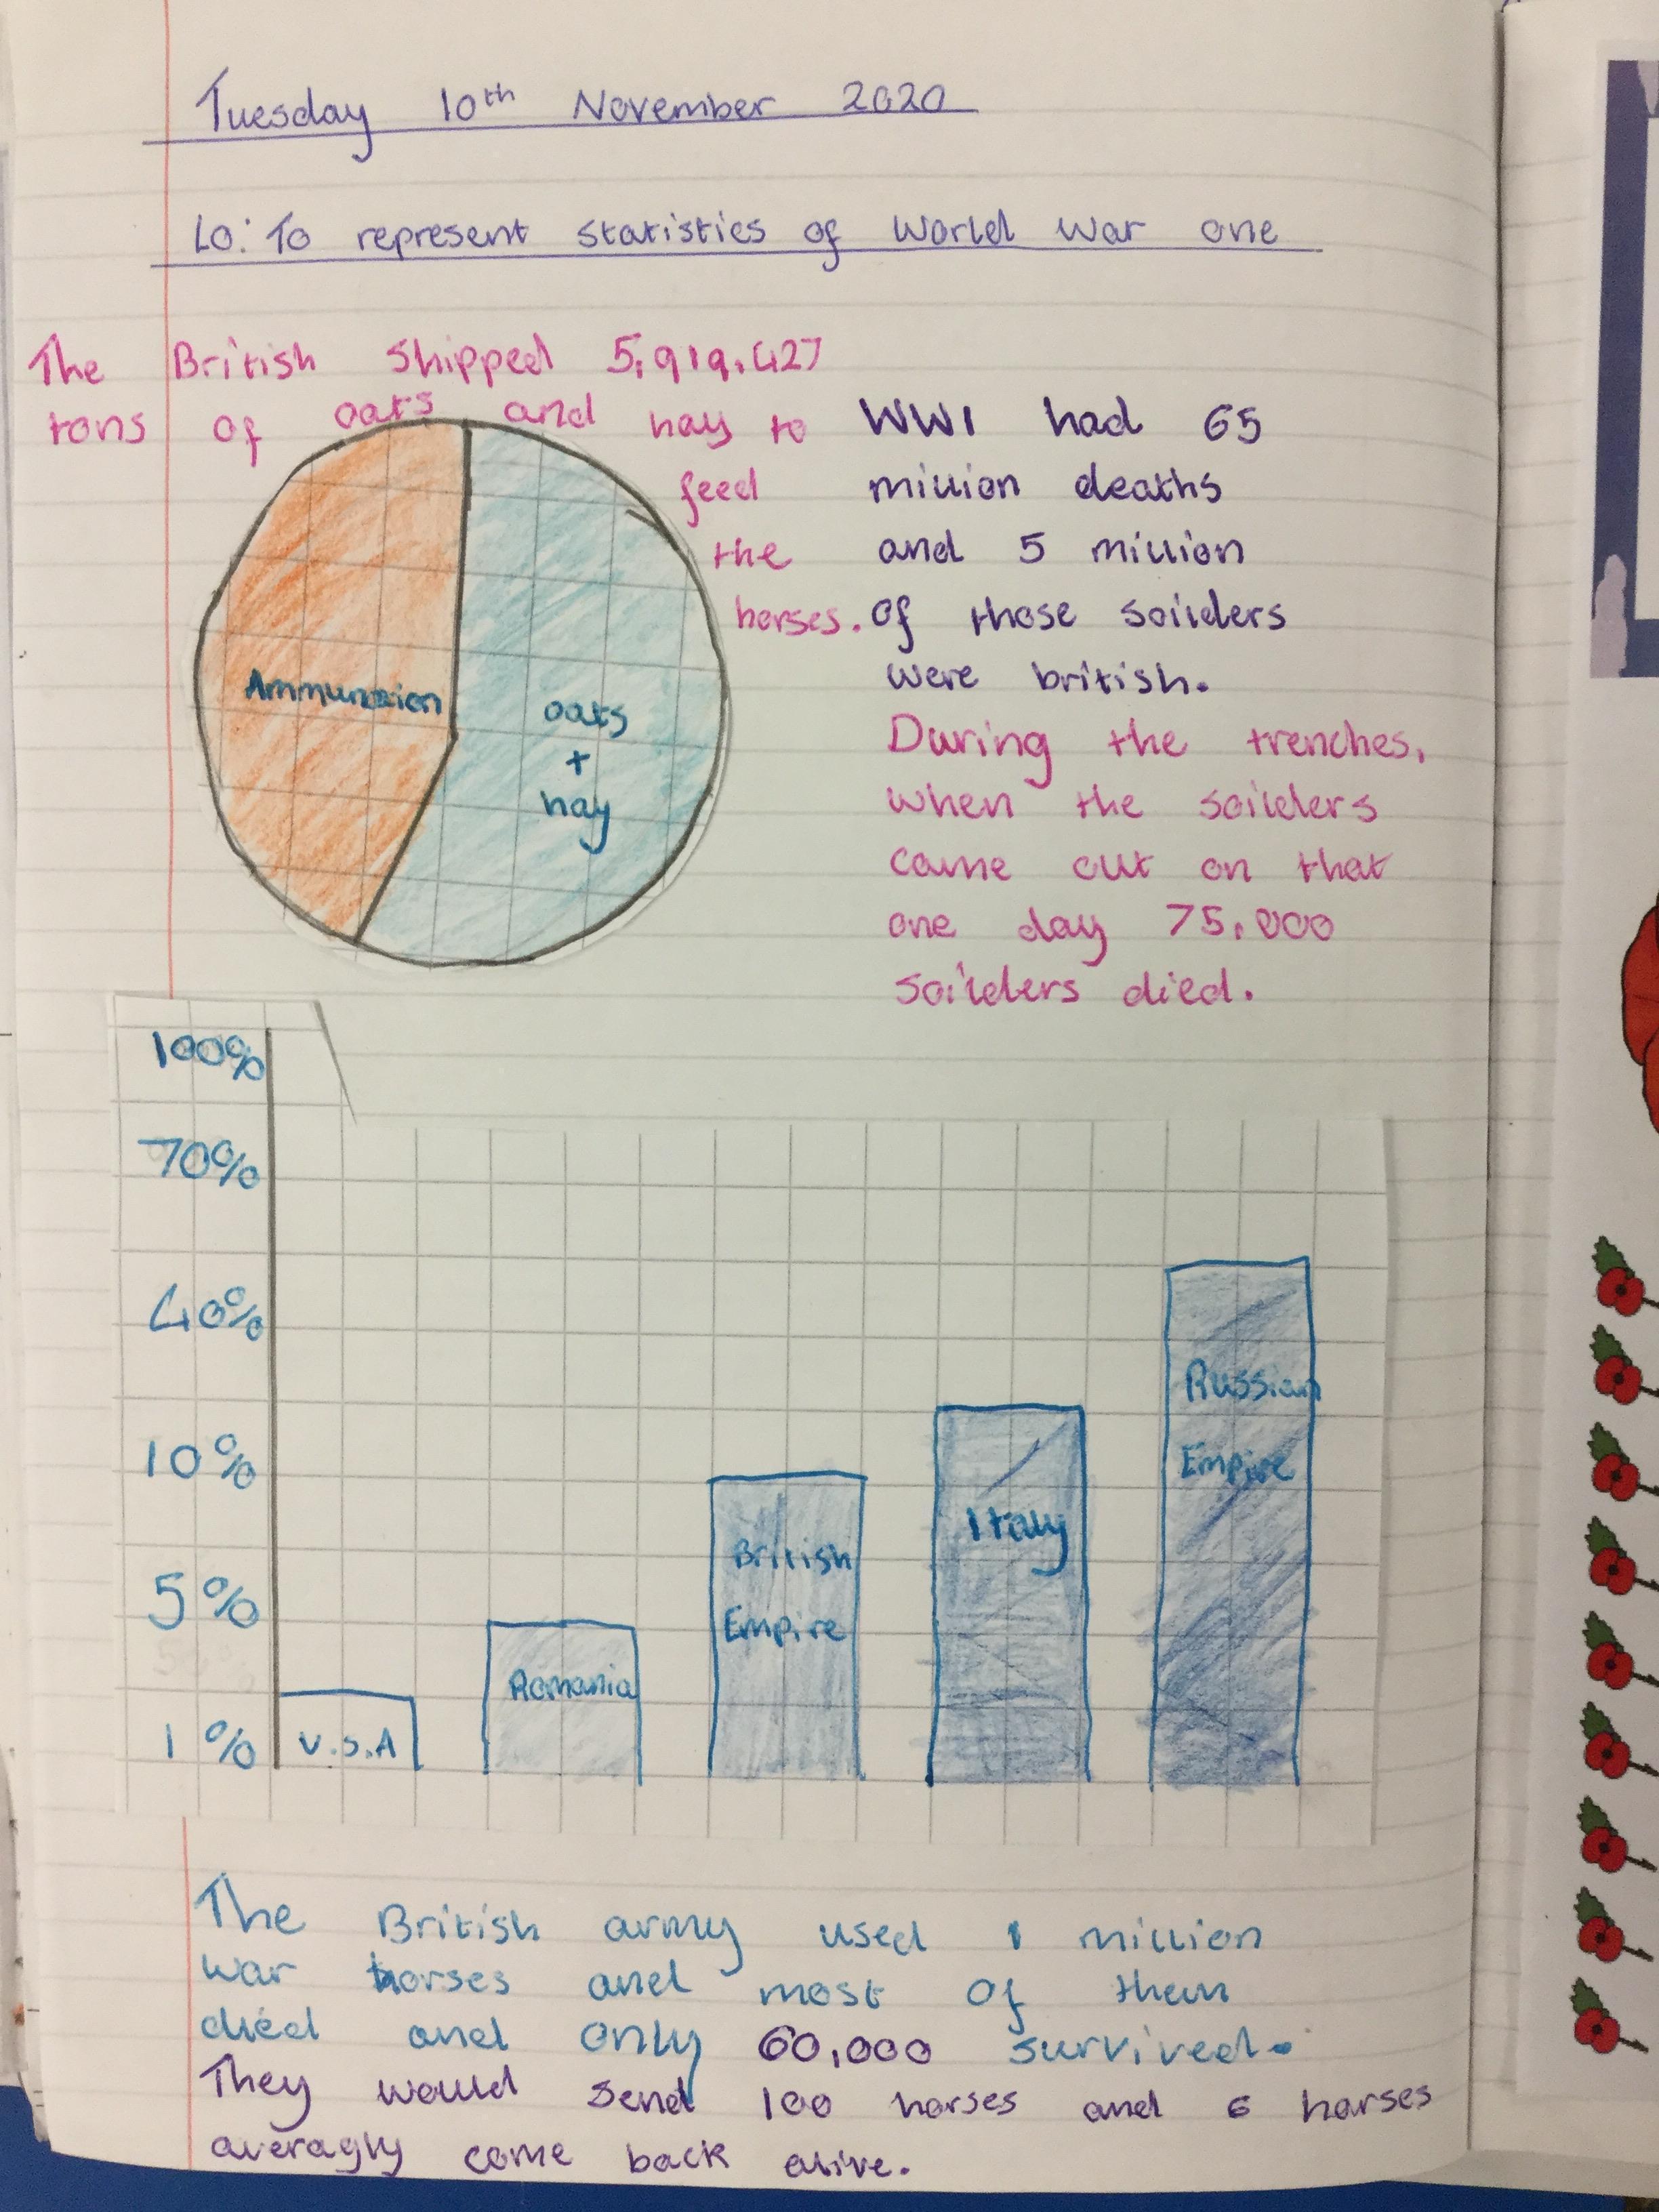 Tuesday 10th November 2020
LO: To represent statisties of World War one
The British Shipped 5,919,427
tons of oats and hay to
feed
the
horses.
WW1 had 65
million deaths
and 5 million
of those soilders
were british.
During the trenches,
when the soilders
came out on that
one day 75,000
soilders died.
Ammunation
oats
+
hay
100%
70%
40%
10%
5%
1%
U.S.A
Romania
British
Empire
Italy
Russian
Empire
The British army used 1 million
war horses and most of them
died and only 60,000 survived.
They would send 100 horses and 6 horses
averagly come back alive.